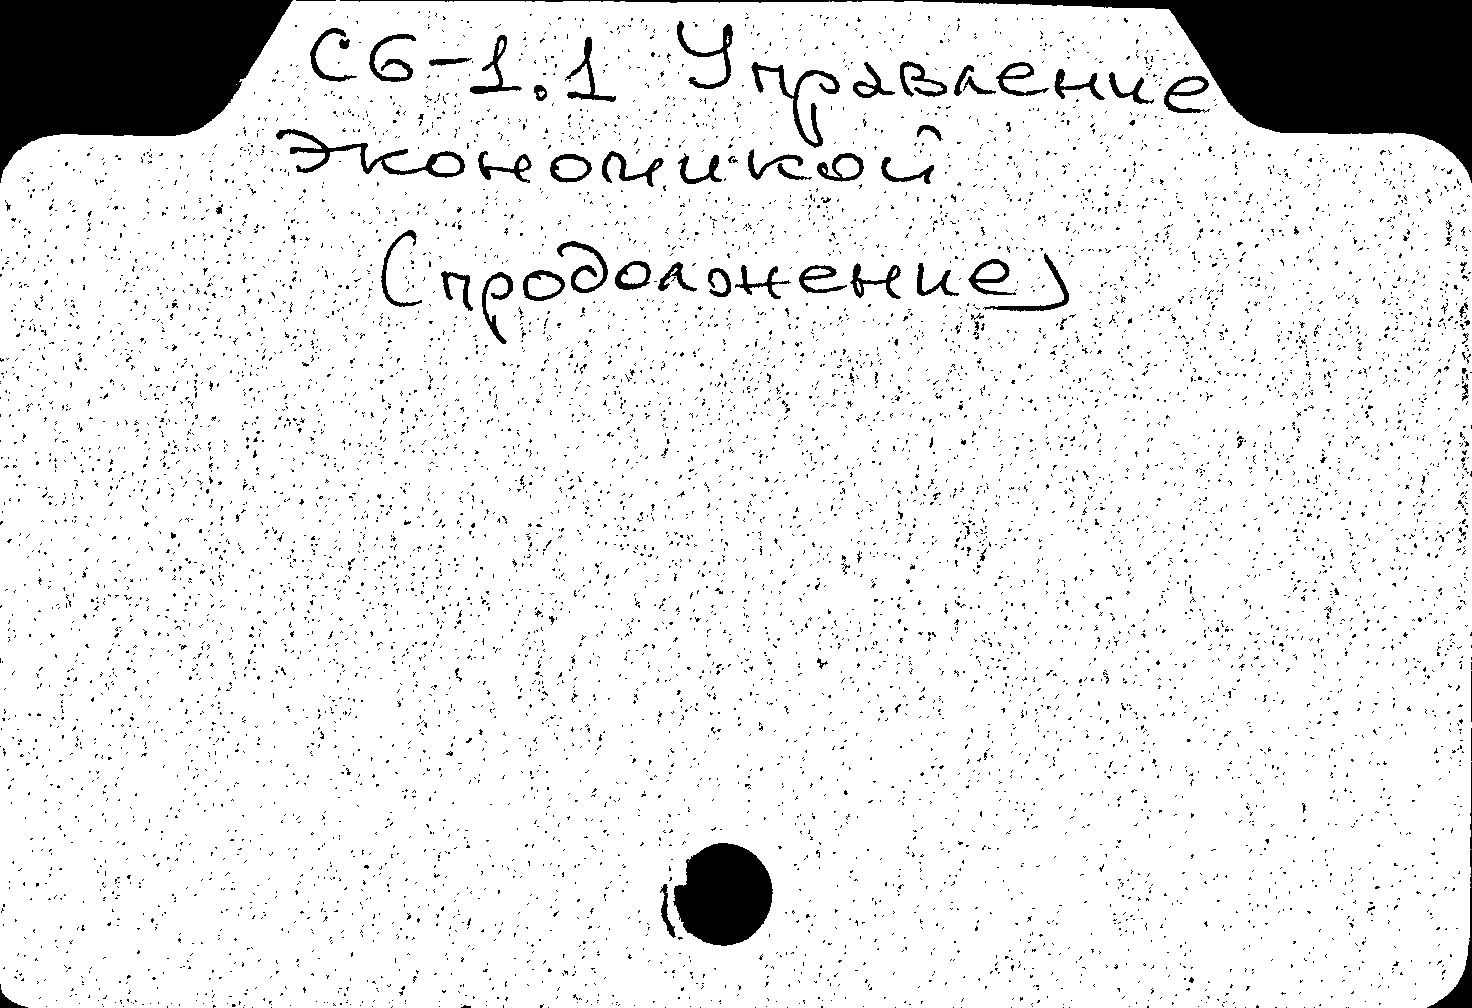 С6-1.1 Управление
экономикой
(продолжение)